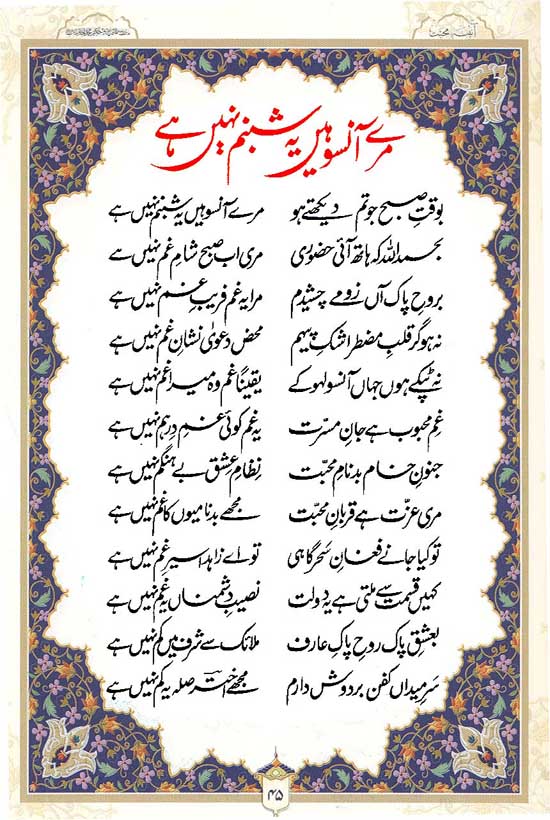 آئینہ محبت
مرے آنسو ہیں یہ شبنم نہیں ہے
بوقتِ صبح جو تم دیکھتے ہو مرے آنسو ہیں یہ شبنم نہیں ہے
بحمد اللہ کہ ہاتھ آئی حضوری مری اب صبح شامِ غم نہیں ہے
بروحِ پاک آں زومے چشیدم مرا یہ غم فریبِ غم نہیں ہے
نہ ہو گر قلبِ مضطر اشکِ پیہم محض دعویٰ نشانِ غم نہیں ہے
نہ ٹپکے ہوں جہاں آنسو لہو کے یقیناً غم وہ میرا غم نہیں ہے
غمِ محبوب ہے جانِ مسرت یہ غم کوئی غمِ درہم نہیں ہے
جنونِ خام بدنامِ محبت نظامِ عشق بے ہنگم نہیں ہے
مری عزت ہے قربانِ محبّت مجھے بدنامیوں کا غم نہیں ہے
تو کیا جانے فغانِ سحر گاہی تو اے زاہد اسیرِ غم نہیں ہے
کہیں قیمت سے ملتی ہے یہ دولت نصیبِ دشمناں یہ غم نہیں ہے
بعشقِ پاک روحِ پاکِ عارف ملائک سے شرف میں کم نہیں ہے
سرِ میداں کفن بردوش دارم مجھے اختر صلہ یہ کم نہیں ہے
۴۵